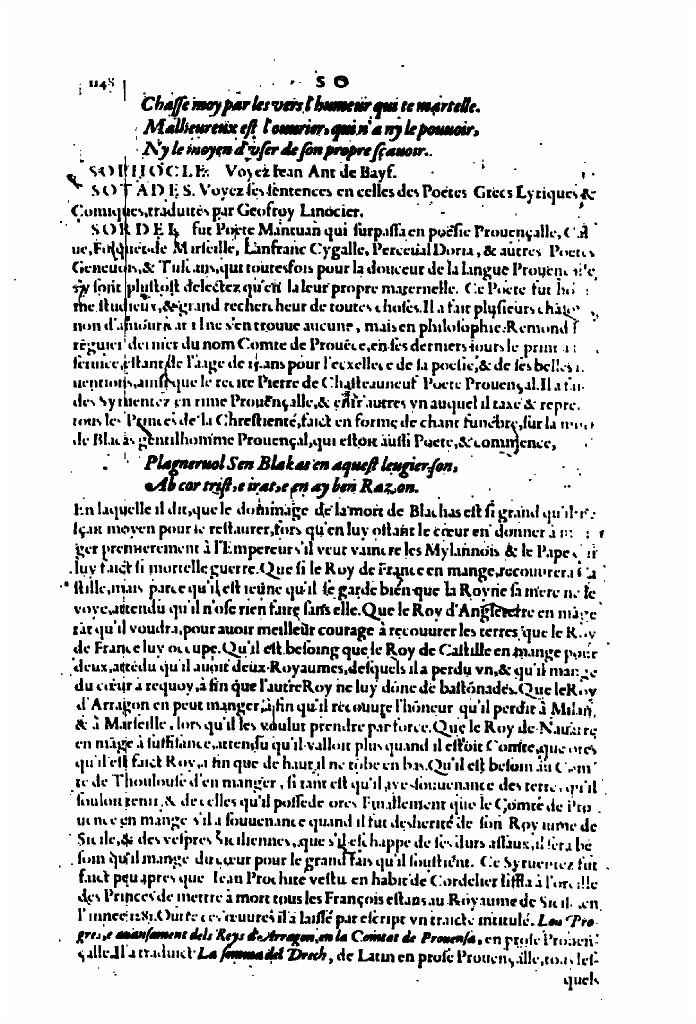 1148
SO
Chasse moy par les vers l'humeur qui te martelle.
Malheureux est l'ouurier, qui n'a ny le pouuoir,
Ny le moyen d'vser de son propre sçauoir.
SOPHOCLE. Voyez Iean Ant de Bayf.
SOTADES. Voyez ses sentences en celles des Poëtes Grecs Lyriques &
Comiques, traduites par Geofroy Linocier.
SORDEL fut Poëte Mantuan qui surpassa en poësie Prouençalle,
ue, Folquet de Marseille, Lanfranc Cygalle, Perceual Doria, & autres Poetes
Geneuois, & Tuscans, qui toutesfois pour la douceur de la langue
sy sont plustost delectez qu'en la leur propre maternelle. Ce Poëte fut
me studieux, & grand rechercheur de toutes choses. Il a fait plusieurs
non d'amour, car il ne s'en trouue aucune, mais en philosophie. Remond
reguier dernier du nom Comte de Prouëce, en ses derniers iours le print a
seruice, estant de l'aage de 15. ans pour l'excellece de sa poesie, & de ses belles
uentions, ainsi que le recite Pierre de Chasteauneuf Poete Prouençal. Il a
des Syruentez en rime Prouençalle, & entr'autres vn auquel il taxe & repre
tous les Princes de la Chrestienté, faict en forme de chant funebre, sur la mort
de Blacas gentilhomme Prouençal, qui estoit aussi Poete, & commence,
Plagner uol Sen Blakas en aquest leugier son,
Ab cor trist, e irat, e en ay ben Razon.
En laquelle il dit, que le dommage de la mort de Blachas est si grand qu'il
sçait moyen pour le restaurer, fors qu'en luy ostant le cœur en donner à
ger premierement à l'Empereur s'il veut vaincre les Mylannois & le Pape
luy faict si mortelle guerre. Que si le Roy de France en mange, recouurera
stille, mais parce qu'il est ieune qu'il se garde bien que la Royne sa mere ne le
voye, attendu qu'il n'ose rien faire sans elle. Que le Roy d'Angleterre en mãge
tãt qu'il voudra, pour auoir meilleur courage à recouurer les terres que le Roy
de France luy occupe. Qu'il est besoing que le Roy de Castille en mange pour
deux, attẽdu qu'il auoit deux Royaumes, desquels il a perdu vn, & qu'il mange
du cœur à requoy, à fin que l'autre Roy ne luy dõne de bastõnades. Que le Roy
d'Arragon en peut manger, à fin qu'il recouure l'hõneur qu'il perdit à Milan,
& à Marseille, lors qu'il les voulut prendre par force. Que le Roy de Nauarre
en mãge à suffisance, attendu qu'il valloit plus quand il estoit Comte, que ores
qu'il est faict Roy, a fin que de haut il ne tõbe en bas. Qu'il est besoin au Com
te de Thoulouse d'en manger, si tant est qu'il aye souuenance des terres qu'il
souloit tenir, & de celles qu'il possede ores Finallement que le Comte de Pro
uence en mange s'il a souuenance quand il fut desherité de son Royaume de
Sicile, & des vespres Siciliennes, que s'il eschappe de ses durs assaux, il sera be
soin qu'il mange du cœur pour le grand fais qu'il soustient. Ce Syruentez fut
faict peu apres que Iean Prochite vestu en habit de Cordelier siffla à l'oreille
des Princes de mettre à mort tous les François estans au Royaume de Sicile, en
l'annee 1281. Outre ces œuures il a laissé par escript vn traicté intitulé. Lou Pro-
gres, e auansament dels Reys d'Arragon, en la Comtat de Prouensa, en prose Prouen-
çalle. Il a traduict La somma del Drech, de Latin en prose Prouençalle, tous les-
quels